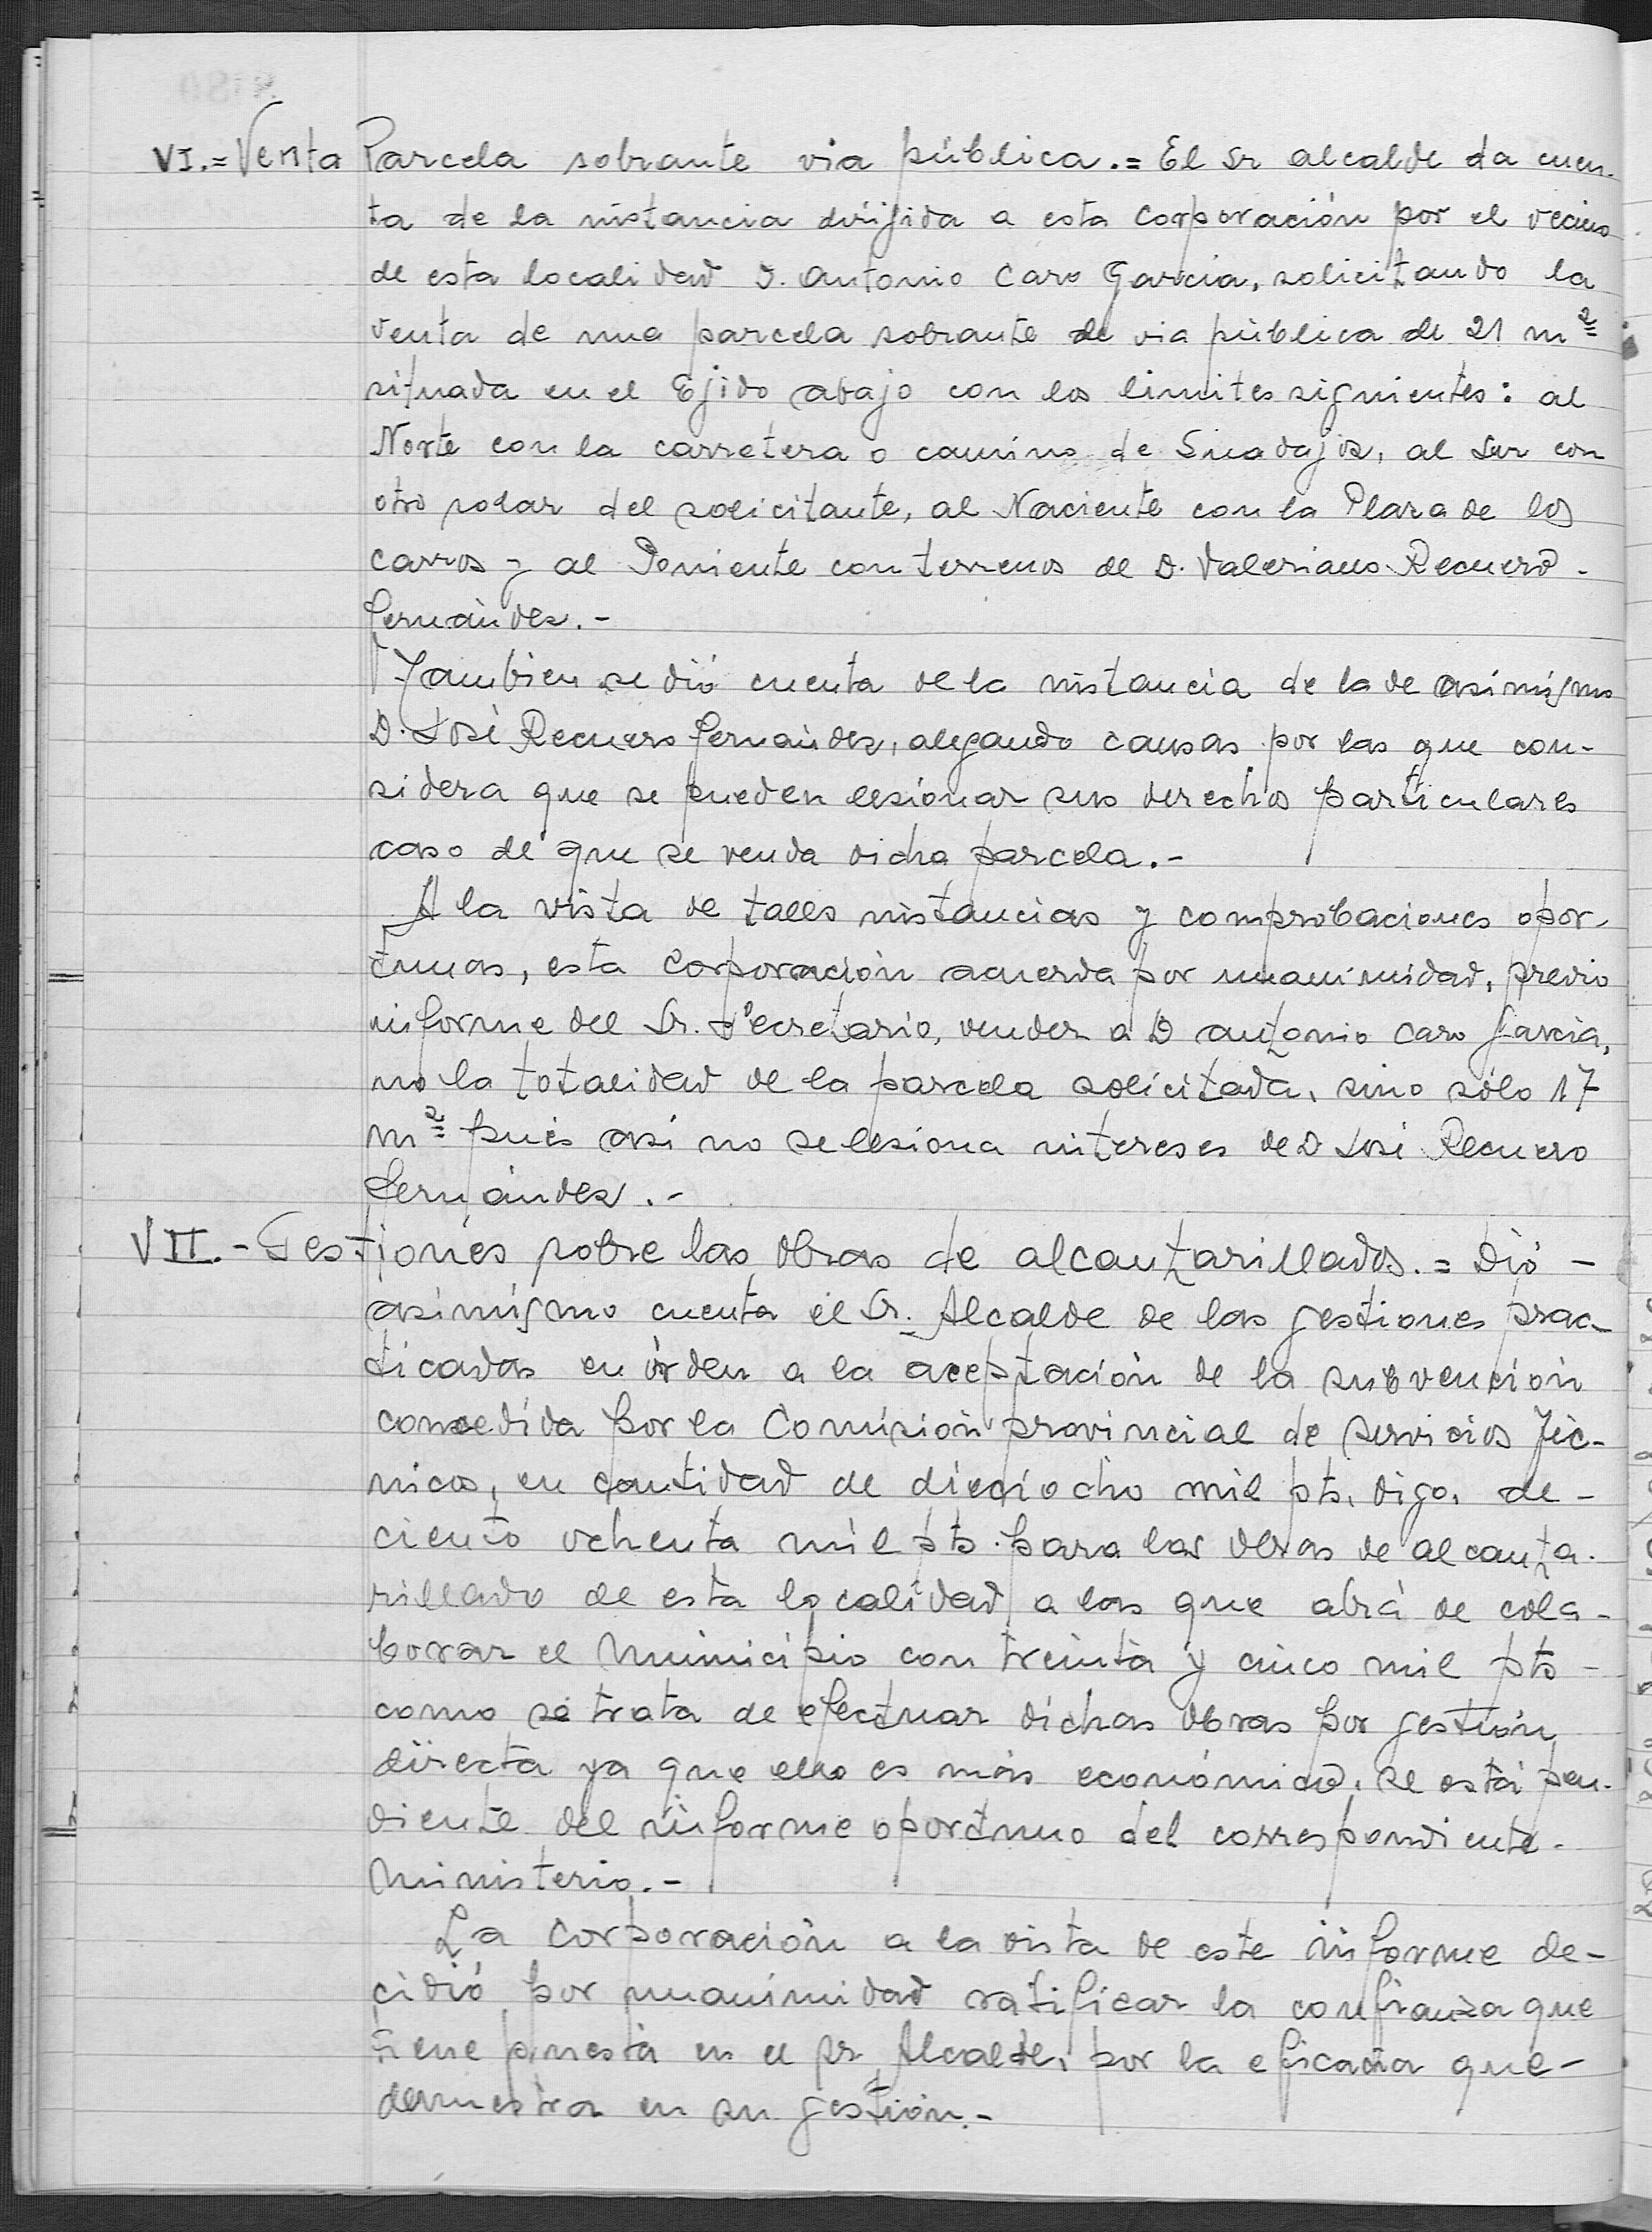 VI.= Venta Parcela sobrante via pública.= El Sr alcalde da cuen-
ta de la instancia dirijida a esta Corporación por el vecino
de esta localidad D. Antonio Caro Garcia, solicitando la
venta de una parcela sobrante de via pública de 21 m²
situada en el Ejido abajo con los limites siguientes: al
Norte con la carretera o camino de al Sur con
otro solar del solicitante, al Naciente con la Plaza de los
carros y al Poniente con terrenos de D. Valeriano Recuero -
Fernández.-
Tambien se dió cuenta de la instancia de la de asimismo
D. José Recuero Fernández, alegando causas por las que con-
sidera que se pueden lesionar sus derechos particulares
caso de que se venda dicha parcela.-
A la vista de tales instancias y comprobaciones opor-
tunas, esta Corporación acuerda por unanimidad, previo
informe del Sr. Secretario, vender a D Antonio Caro Garcia,
no la totalidad de la parcela solicitada, sino sólo 17
m² pués asi no se lesiona intereses de D José Recuero
Fernández.-
VII.- Gestiones sobre las obras de alcantarillados.= Dió -
asimismo cuenta el Sr. Alcalde de las gestiones prac-
ticadas en órden a la aceptación de la subvención
concedida por la Comisión provincial de Servicios Téc-
nicos, en cantidad de dieciocho mil pts. digo, de -
ciento ochenta mil pts. para las obras de alcanta-
rillado de esta localidad a las que abrá de cola-
borar el Municipio con treinta y cinco mil pts -
como se trata de efectuar dichas obras por gestión
directa ya que ello es más económico, se está pen-
diente del informe oportuno del correspondiente -
Ministerio.-
La Corporación a la vista de este informe de-
cidió por unanimidad ratificar la confianza que
tiene puesta en el Sr. Alcalde, por la eficacia que -
demuestra en su gestión.-